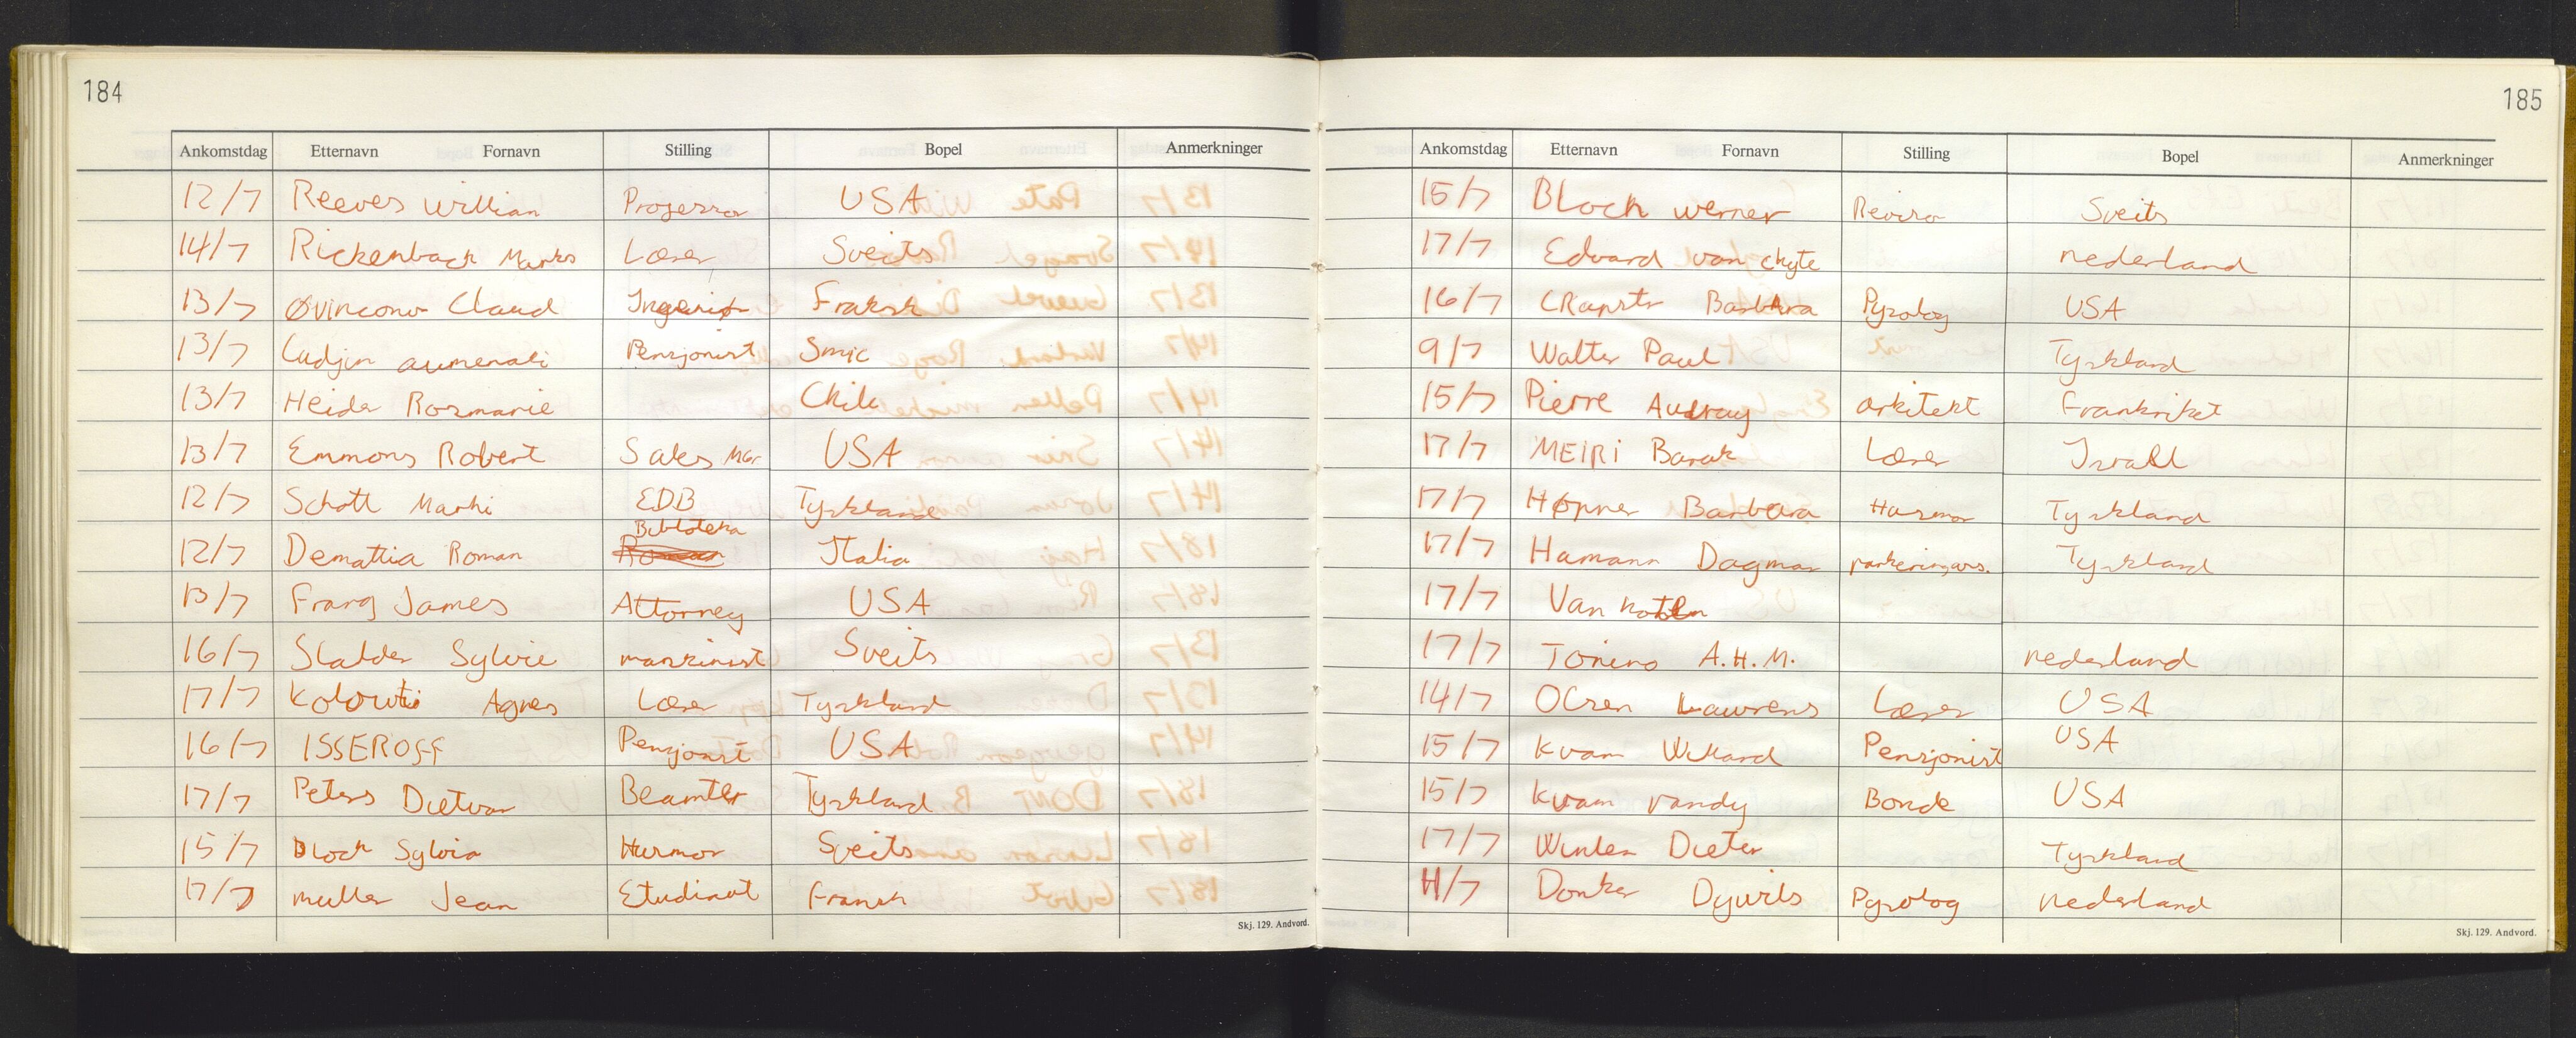 184
Ankomstdag Etternavn Fornavn Stilling Bopel Anmerkninger
12/7 Reeves William Professor USA
14/7 Rickenback Marks Lærer Sveits
13/7 Claud Fransk
13/7 Pensjonist
13/7 Heide Rosmarie Chile
13/7 Emmons Robert Sales Mgr USA
12/7 Schott EDB Tyskland
Bibloteka
12/7 Demattia Roman Italia
13/7 Frang James Attorney USA
16/7 Stalder Sylvie maskinist Sveits
17/7 Agnes Lærer Tyskland
16/7 ISSEROFF Pensjonist USA
17/7 Peters Dietvar Beamter Tyskland
15/7 Block Sylvia Husmor Sveits
17/7 muller Jean Etudiant Fransk
Skj. 129. Andvord.
185
Ankomstdag Etternavn Fornavn Stilling Bopel Anmerkninger
15/7 Block werner Revisor Sveits
17/7 Edvard van nederland
16/7 Barbara USA
9/7 Walter Paul Tyskland
15/7 Pierre Audray arkitekt Frankriket
17/7 MEIRI Barak Lærer Israel
17/7 Høpner Barbara Husmor Tyskland
17/7 Hamann Dagmar parkeringsvs. Tyskland
17/7 Van
17/7 Tonino A.H.M. nederland
14/7 Olsen Lawrens Lærer USA
15/7 Kvam Willard Pensjonist USA
15/7 Kvam randy Bonde USA
17/7 Winter Dieter Tyskland
Donker nederland
Skj. 129. Andvord.